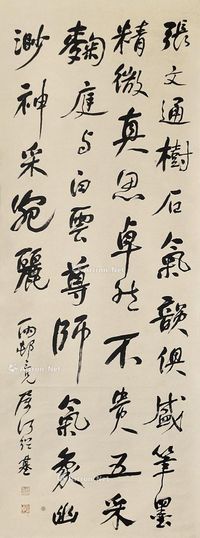 張文通樹石氣韻俱盛筆墨
精微真思卓然不貴五采
麴庭與白雲尊師氣象幽
渺神采宛麗